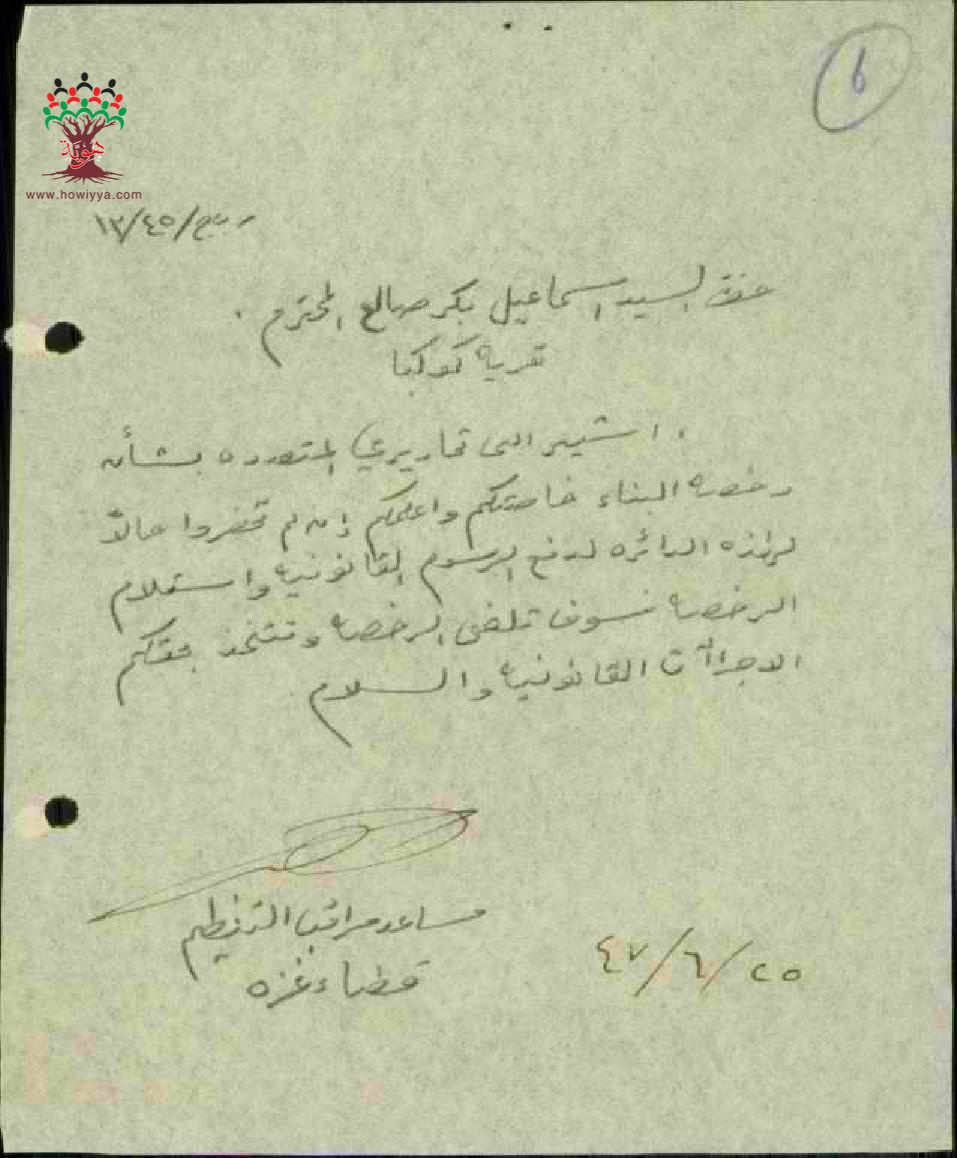 ٦
هوية
www.howiyya.com
ر ب ع/٤٥/١٣
حضرة السيد اسماعيل بكر صالح المحترم .
قرية كوكبا
. اشير الى تحاريري المتعدده بشأن
رخصة البناء خاصتكم واعلمكم إن لم تحضروا حالاً
لهذه الدائره لدفع الرسوم القانونيه واستلام
الرخصه فسوف تلغى الرخصه وتتخذ بحقكم
الاجراأت القانونيه والسلام
مساعد مراقب التنظيم
قضاء غزه
٤٧/٦/٢٥